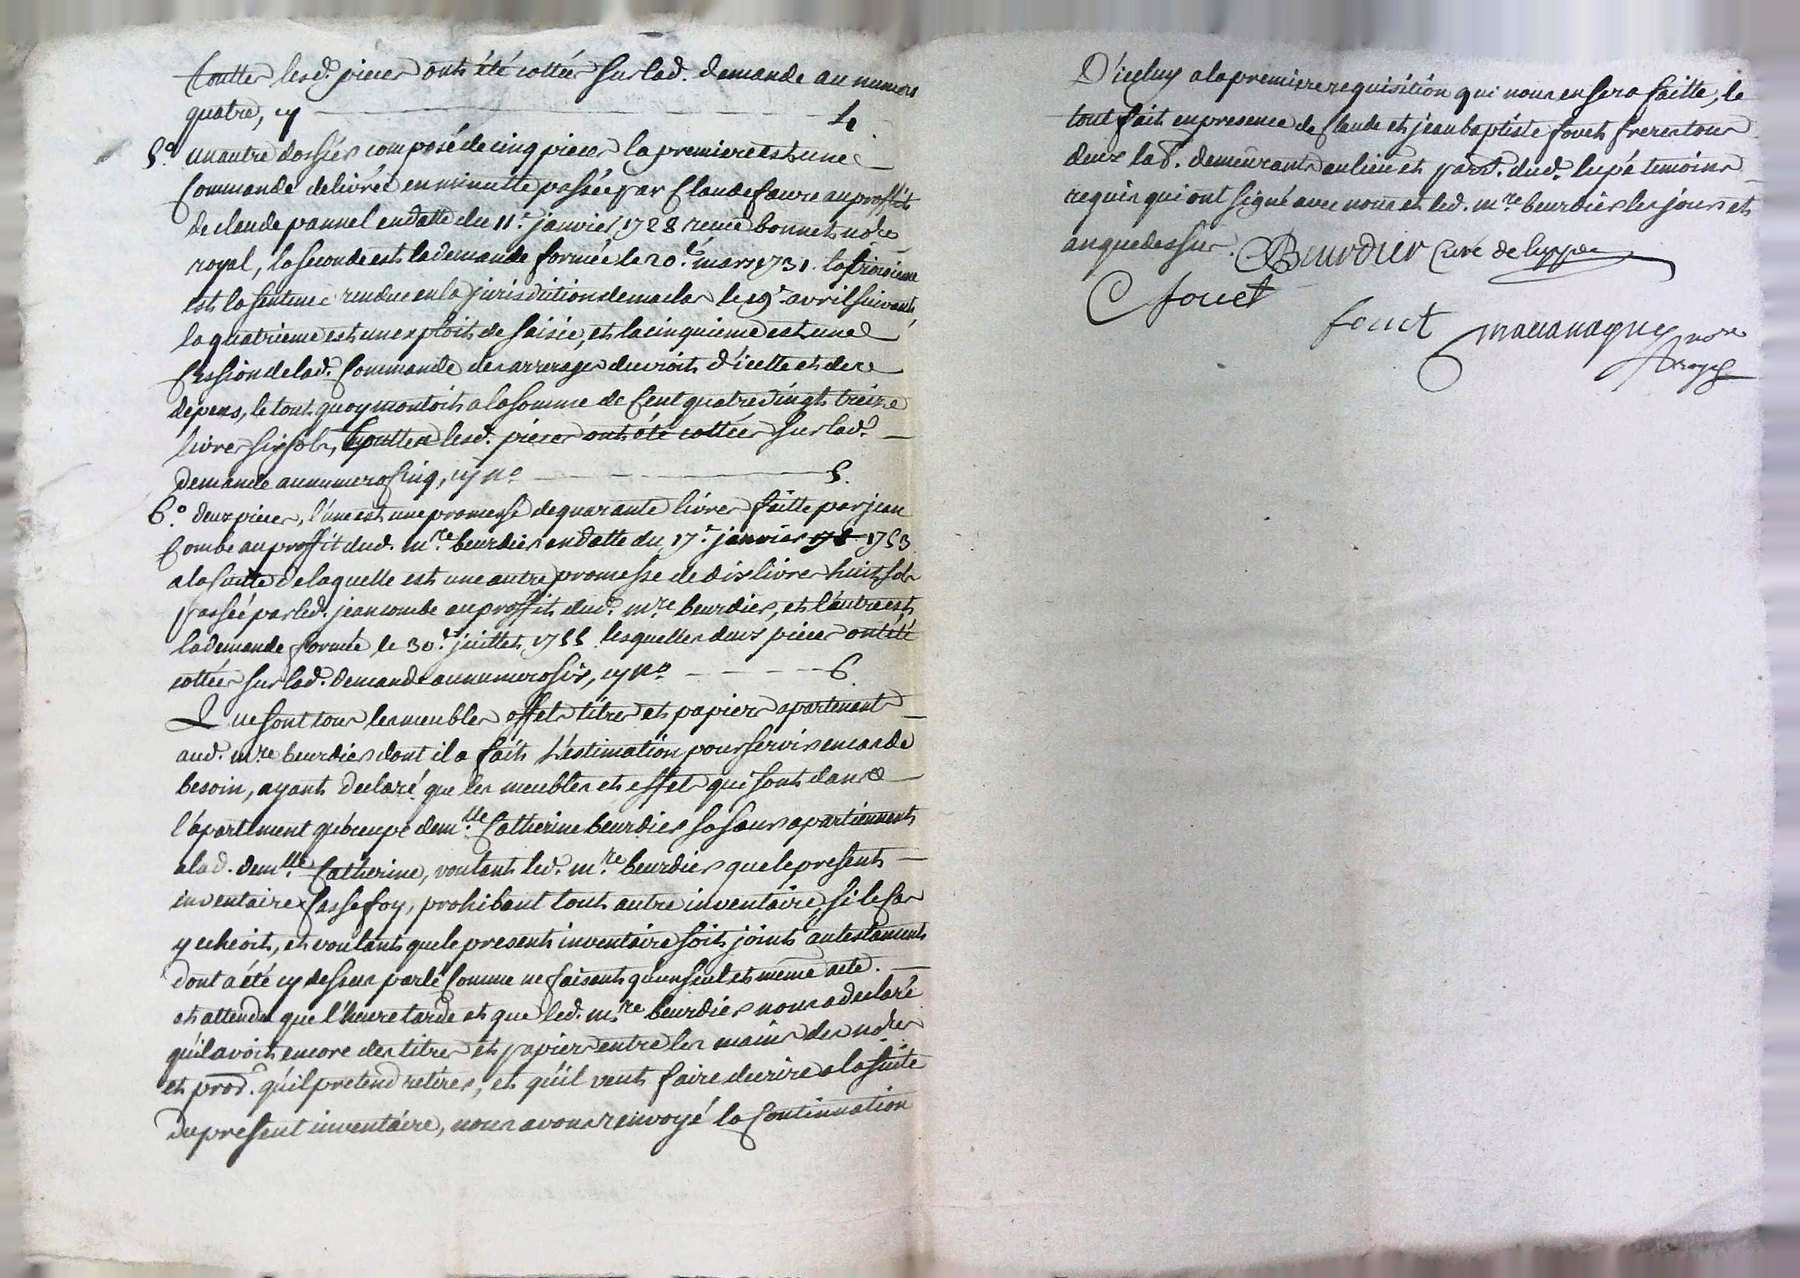 toutter lesd. pieces ont été cottées sur lad. demande au numero
quatre, cy 4.
5.º un autre dossier composé de cinq pieces la premiere est une
commande delivrée en minutte passée par Claude faure au proffit
de claude pannel en datte du 11.e janvier 1728 receue bonnet no.re
royal, la seconde est la demande formée le 20.e mars 1731. la troisieme
est la sentence rendue en la jurisdiction de maclas le 19.e avril suivant
la quatrieme est un exploit de saisie, et la cinquieme est une
cession de lad. commande des arrerages du droit d'icelle et des
depens, le tout quoy montoit a la somme de cent quatre vingt treize
livres six sols, toutter lesd. pieces ont été cottées sur lad.
demande au numero cinq, cy nº 5.
6.º deux pieces, l'une est une promesse de quarante livres faitte par jean
combe au proffit dud. m.re beurdier en datte du 17.e janvier 1753
a la suitte de laquelle est une autre promesse de dix livres huit sols
passée par led. jean combe au proffit dud. m.re beurdier, et l'autre est
la demande formée le 30.e juillet 1755 lesquelles deux pieces ont été
cottées sur lad. demande au numero six, cy nº 6.
Que sont tous les meubles effets titres et papiers apartenant
aud. m.re beurdier dont il a fait l'estimation pour servir en cas de
besoin, ayant declaré que les meubles et effet qui sont dans
l'apartement qu'ocupe dem.lle Catherine beurdier sa soeur apartiennent
a lad. dem.lle Catherine, voulant led. m.re beurdier que le present
inventaire fasse foy, prohibant tout autre inventaire, si le cas
y echeoit, et voulant que le present inventaire soit joint au testament
dont a été cy dessus parlé comme ne faisent qu'un seul et même acte.
et attendu que l'heure tarde et que led. m.re beurdier nous a declaré
qu'il avoit encore des titres et papiers entre les mains des no.res
et proc.r qu'il pretend retirer, et qu'il veut faire decrire a la suite
du present inventaire, nous avons renvoyé la continuation
D'iceluy a la premiere requisition qui nous en sera faitte, le
tout fait en presence de claude et jean baptiste fouet freres tous
deux lab.r demeurants au lieu et par.se dud. lupé temoins
requis qui ont signé avec nous et led. m.re beurdier les jours et
an que dessus. Beurdier curé de luppé
C fouet
fouet
no.re
royal